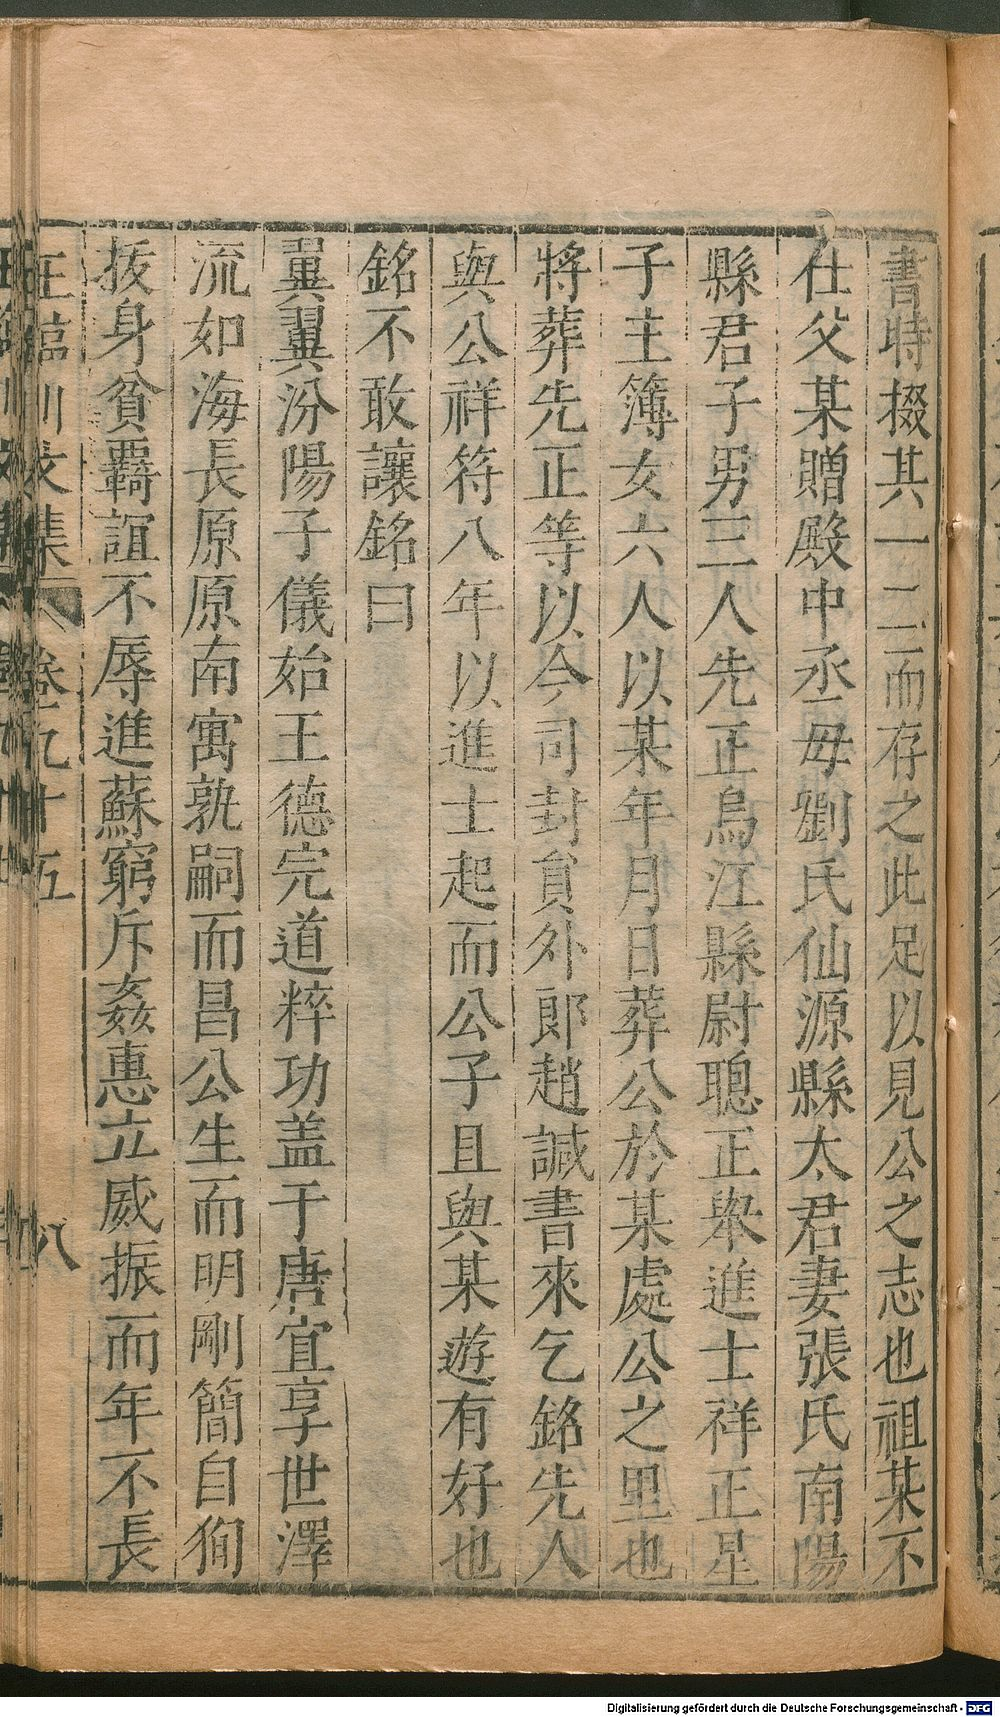 書時掇其一二而存之此足以見公之志也祖某不
仕父某贈殿中丞母劉氏仙源縣太君妻張氏南陽
縣君子男三人先正烏江縣尉聰正舉進士祥正星
子主簿女六人以某年月日葬公於某處公之里也
將葬先正等以今司封貟外郎趙諴書來乞銘先人
與公祥符八年以進士起而公子且與某遊有好也
銘不敢讓銘曰
翼翼汾陽子儀始王德完道粹功盖于唐宜享世澤
流如海長原原南寓孰嗣而昌公生而明剛簡自徇
㧞身貧覊誼不辱進蘇窮斥姦惠立威振而年不長
王臨川文集 卷九十五 八
Digitalisierung gefördert durch die Deutsche Forschungsgemeinschaft - DFG